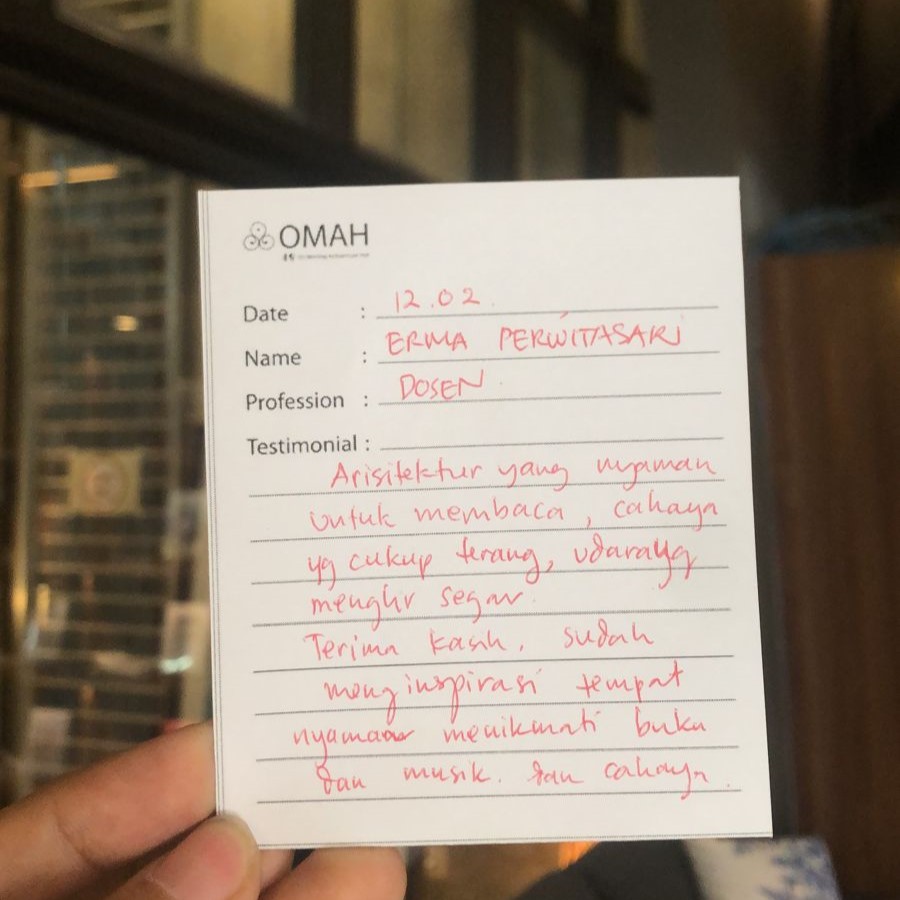 OMAH
Date : 12.02.
Name : ERMA PERWITASARI
Profession : DOSEN
Testimonial :
Arisitektur yang nyaman
untuk membaca, cahaya
yg cukup terang, udara yg
menglir segar.
Terima kasih, sudah
menginspirasi tempat
nyamaan menikmati buku
dan musik. dan cahaya.